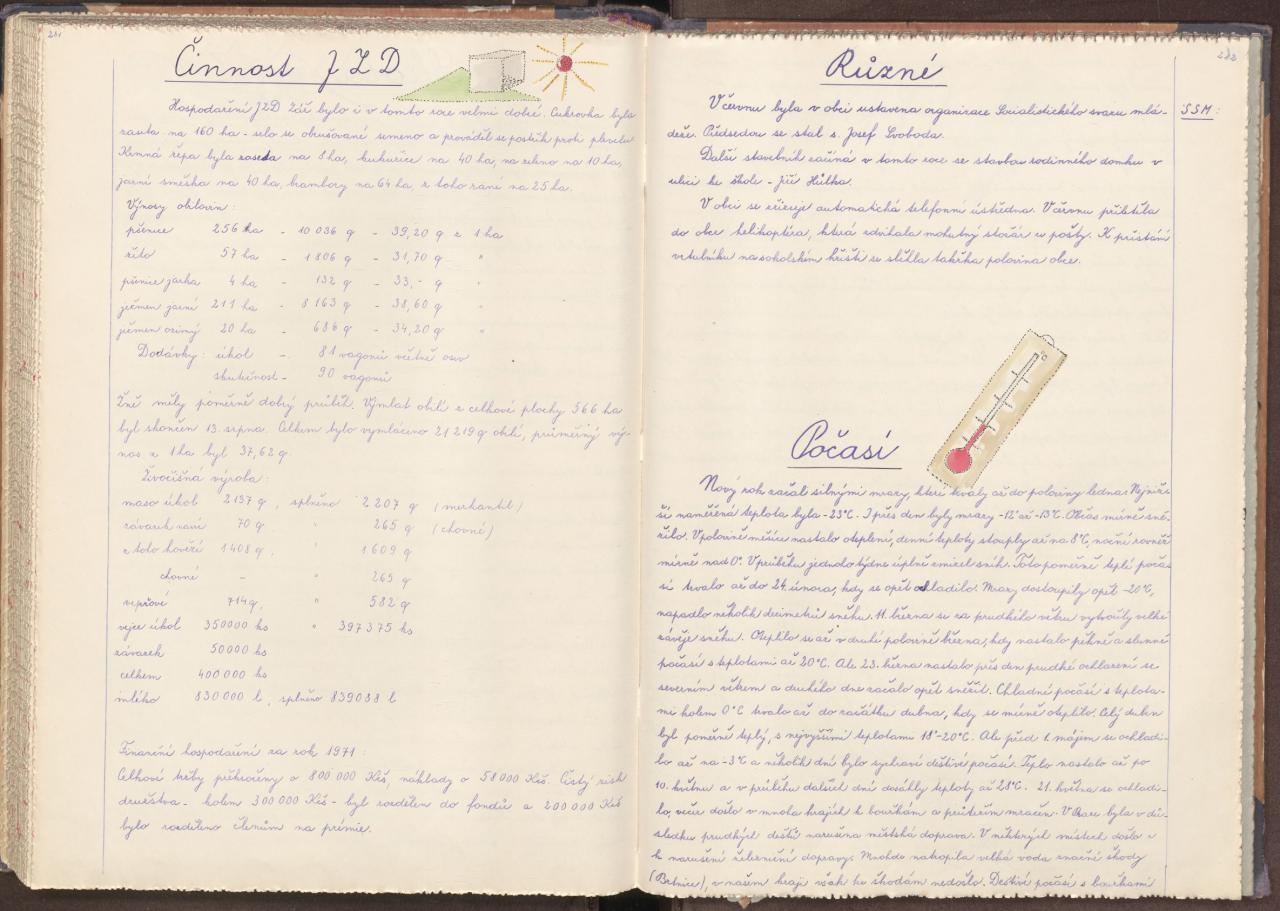 211
Činnost JZD
Hospodaření JZD Září bylo i v tomto roce velmi dobré. Cukrovka byla
zaseta na 160 ha - selo se obrušované semeno a prováděl se postřik proti plevelu
Krmná řepa byla zaseta na 8 ha, kukuřice na 40 ha, na zeleno na 10 ha,
jarní směska na 40 ha, brambory na 64 ha, z toho rané na 25 ha.
Výnosy obilovin:
pšenice 256 ha - 10 036 q - 39,20 q z 1 ha
žito 57 ha - 1 806 q - 31,70 q "
pšenice jarka 4 ha - 132 q - 33,- q "
ječmen jarní 211 ha - 8 163 q - 38,60 q "
ječmen ozimý 20 ha - 686 q - 34,20 q "
Dodávky: úkol - 81 vagonů včetně osiv
skutečnost - 90 vagonů
Žně měly poměrně dobrý průběh. Výmlat obilí z celkové plochy 566 ha
byl skončen 13. srpna. Celkem bylo vymláceno 21 219 q obilí, průměrný vý-
nos z 1 ha byl 37,62 q.
Živočišná výroba:
maso úkol 2 137 q, splněno 2 207 q (merkantil)
závazek navíc 70 q " 265 q (chovné)
z toho hovězí 1 408 q, " 1 609 q
chovné - " 265 q
vepřové 714 q, " 582 q
vejce úkol 350 000 ks " 397 375 ks
závazek 50 000 ks
celkem 400 000 ks
mléko 830 000 l, splněno 839 088 l
Finanční hospodaření za rok 1971:
Celkové tržby překročeny o 800 000 Kčs, náklady o 58 000 Kčs. Čistý zisk
družstva - kolem 300 000 Kčs - byl rozdělen do fondů a 200 000 Kčs
bylo rozděleno členům na prémie.
212
Různé
V červnu byla v obci ustavena organizace Socialistického svazu mlá-
deže. Předsedou se stal s. Josef Svoboda.
SSM:
Další stavebník začíná v tomto roce se stavbou rodinného domku v
ulici ke škole - Jiří Hůlka.
V obci se zřizuje automatická telefonní ústředna. V červnu přiletěla
do obce helikoptéra, která zdvihala mohutný stožár u pošty. K přistání
vrtulníku na sokolském hřišti se sběhla takřka polovina obce.
°C
Počasí
Nový rok začal silnými mrazy, které trvaly až do poloviny ledna. Nejniž-
ší naměřená teplota byla -23°C. I přes den byly mrazy -12° až -13°C. Občas mírně sně-
žilo. V polovině měsíce nastalo oteplení, denní teploty stouply až na 8°C, noční rovněž
mírně nad 0°. V průběhu jednoho týdne úplně zmizel sníh. Toto poměrně teplé poča-
sí trvalo až do 24. února, kdy se opět ochladilo. Mrazy dostoupily opět -20°C,
napadlo několik decimetrů sněhu. 11. března se za prudkého větru vytvořily velké
závěje sněhu. Oteplilo se až v druhé polovině března, kdy nastalo pěkné a slunné
počasí s teplotami až 20°C. Ale 23. března nastalo přes den prudké ochlazení se
severním větrem a druhého dne začalo opět sněžit. Chladné počasí s teplota-
mi kolem 0°C trvalo až do začátku dubna, kdy se mírně oteplilo. Celý duben
byl poměrně teplý, s nejvyššími teplotami 18°-20°C. Ale před 1. májem se ochladi-
lo až na -3°C a několik dní bylo sychravé deštivé počasí. Teplo nastalo až po
10. květnu a v průběhu dalších dní dosáhly teploty až 28°C. 21. května se ochladi-
lo, večer došlo v mnoha krajích k bouřkám a průtržím mračen. V Praze byla v dů-
sledku prudkých dešťů narušena městská doprava. V některých místech došlo i
k narušení železniční dopravy. Mnohde natropila velká voda značné škody
v našem kraji však ke škodám nedošlo. Deštivé počasí s bouřkami